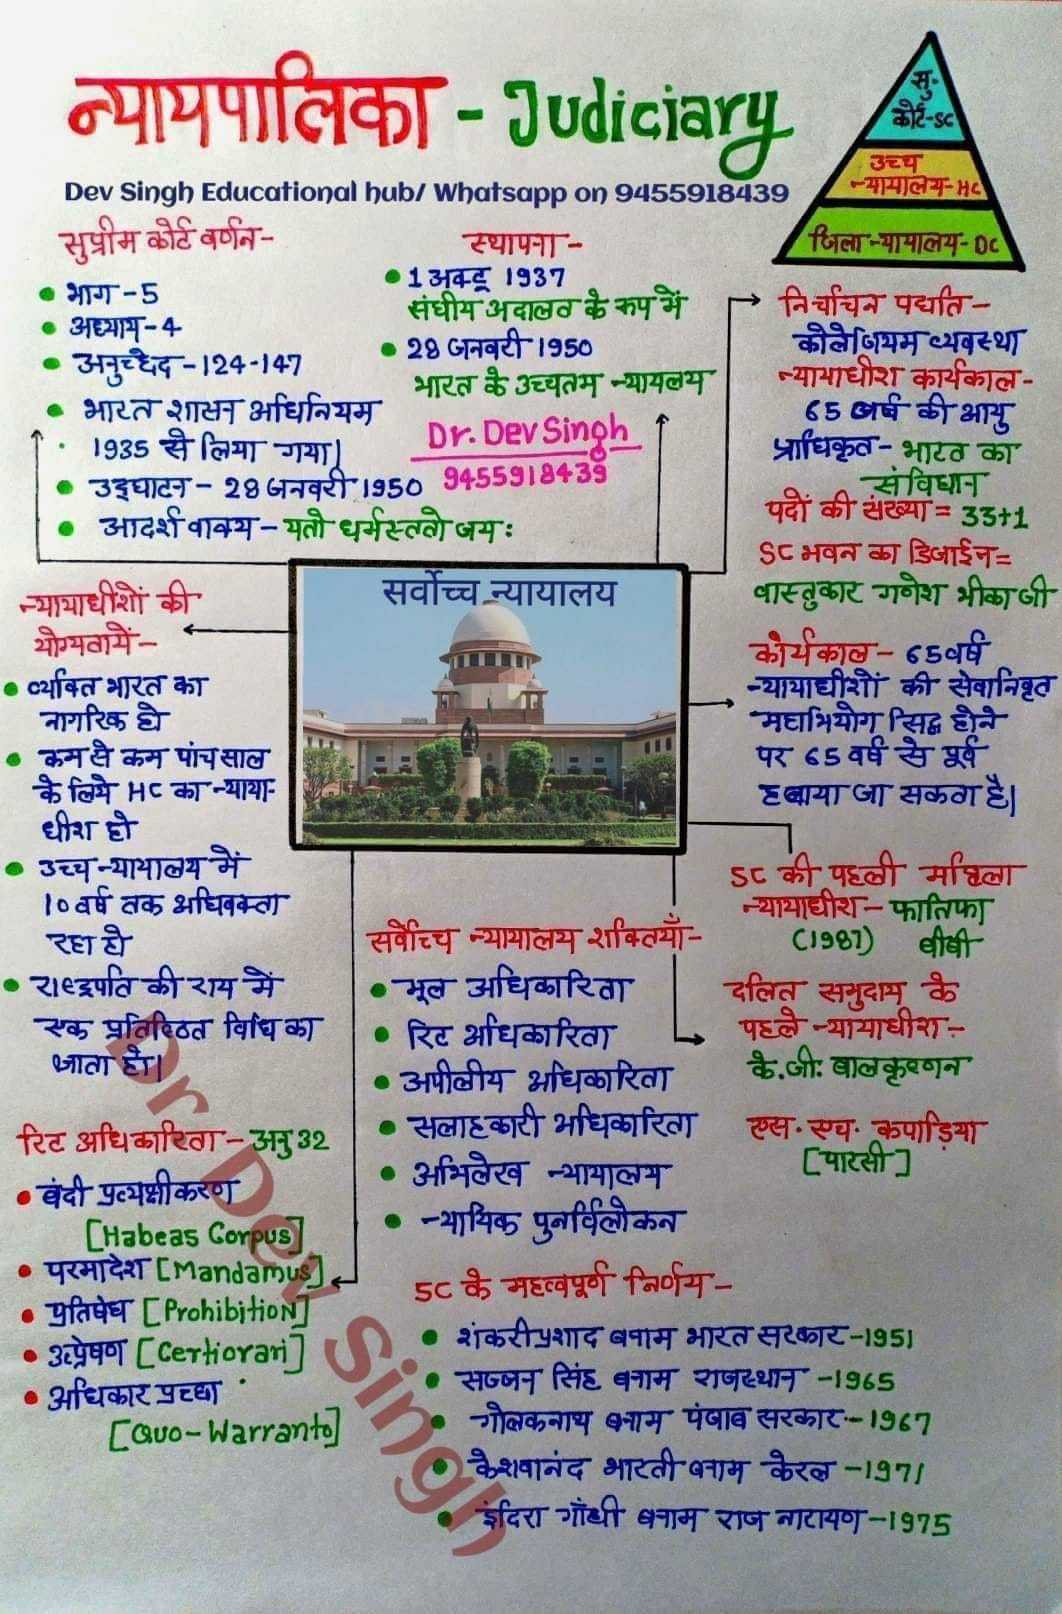 न्यायपालिका - Judiciary
Dev Singh Educational hub/ Whatsapp on 9455918439
सु.
कोर्ट-SC
उच्च
न्यायालय-HC
जिला न्यायालय-DC
सुप्रीम कोर्ट वर्णन-
भाग-5
अध्याय-4
अनुच्छेद-124-147
भारत शासन अधिनियम
1935 से लिया गया|
उद्घाटन - 28 जनवरी 1950
आदर्श वाक्य - यतो धर्मस्ततो जयः
स्थापना -
1 अक्टू 1937
संघीय अदालत के रूप में
28 जनवरी 1950
भारत के उच्चतम न्यायलय
Dr. Dev Singh
9455918439
निर्वाचन पद्यति-
कोलेजियम व्यवस्था
न्यायाधीश कार्यकाल-
65 वर्ष की आयु
प्राधिकृत- भारत का
संविधान
पदों की संख्या = 33+1
SC भवन का डिजाईन=
वास्तुकार गणेश भीकाजी
सर्वोच्च न्यायालय
न्यायाधीशों की
योग्यतायें-
व्यक्ति भारत का
नागरिक हो
कम से कम पांच साल
के लिये HC का न्याया-
धीश हो
उच्च न्यायालय में
10 वर्ष तक अधिवक्ता
रहा हो
राष्ट्रपति की राय में
एक प्रतिष्ठित विधि का
ज्ञाता हो|
कार्यकाल- 65 वर्ष
न्यायाधीशों की सेवानिवृत
महाभियोग सिद्ध होने
पर 65 वर्ष से पूर्व
हटाया जा सकता है|
SC की पहली महिला
न्यायाधीश- फातिफा
(1987) बीबी
दलित समुदाय के
पहले न्यायाधीश-
के.जी. बालकृष्णन
एस. एच. कपाड़िया
[पारसी]
सर्वोच्च न्यायालय शक्तियाँ-
मूल अधिकारिता
रिट अधिकारिता
अपीलीय अधिकारिता
सलाहकारी अधिकारिता
अभिलेख न्यायालय
न्यायिक पुनर्विलोकन
रिट अधिकारिता- अनु 32
बंदी प्रत्यक्षीकरण
[Habeas Corpus]
परमादेश [Mandamus]
प्रतिषेध [Prohibition]
उत्प्रेषण [Certiorari]
अधिकार प्रच्छा
[Quo-Warranto]
SC के महत्वपूर्ण निर्णय-
शंकरीप्रशाद बनाम भारत सरकार-1951
सज्जन सिंह बनाम राजस्थान -1965
गोलकनाथ बनाम पंजाब सरकार-1967
केशवानंद भारती बनाम केरल -1971
इंदिरा गाँधी बनाम राज नारायण-1975
Dr Dev Singh